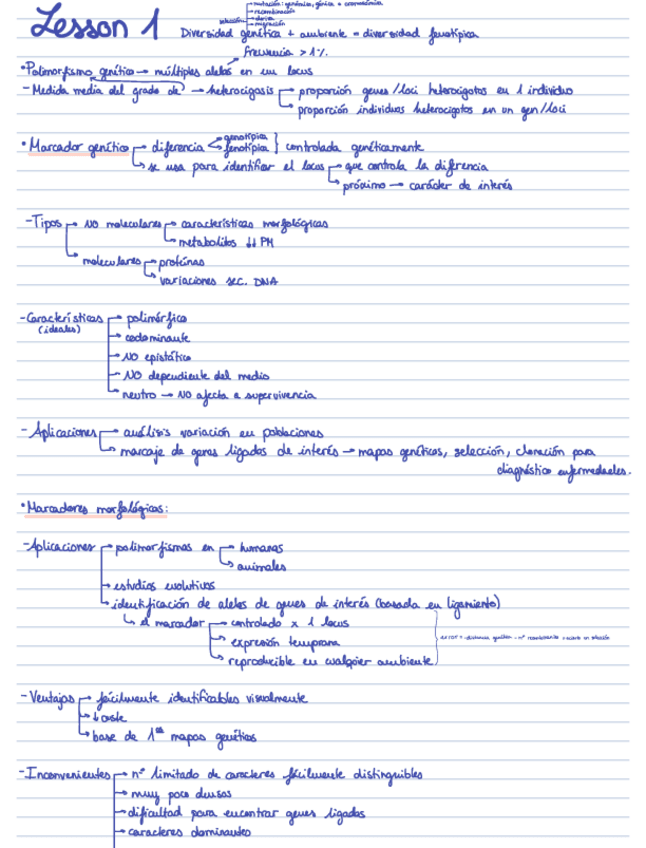 mutación: genómica, génica o cromosómica
recombinación
selección deriva
migración
Lesson 1 Diversidad genética + ambiente = diversidad fenotípica
frecuencia > 1%
• Polimorfismo genético → múltiples alelos en un locus
- Medida media del grado de → heterocigosis → proporción genes/loci heterocigotos en 1 individuo
→ proporción individuos heterocigotos en un gen/loci
• Marcador genético → diferencia < genotípica fenotípica } controlada genéticamente
→ se usa para identificar el locus → que controla la diferencia
→ próximo → carácter de interés
- Tipos → NO moleculares → características morfológicas
→ metabolitos ↓↓ PM
moleculares → proteínas
→ variaciones sec. DNA
- Características → polimórfico
(ideales) → codominante
→ NO epistático
→ NO dependiente del medio
→ neutro → NO afecta a supervivencia
- Aplicaciones → análisis variación en poblaciones
→ marcaje de genes ligados de interés → mapas genéticos, selección, clonación para
diagnóstico enfermedades.
• Marcadores morfológicos:
- Aplicaciones → polimorfismos en → humanos
→ animales
→ estudios evolutivos
→ identificación de alelos de genes de interés (basada en ligamiento)
↳ el marcador → controlado x 1 locus
→ expresión temprana
→ reproducible en cualquier ambiente
- Ventajas → fácilmente identificables visualmente
→ ↓ coste
→ base de 1ᵒˢ mapas genéticos
- Inconvenientes → nº limitado de caracteres fácilmente distinguibles
→ muy poco densos
→ dificultad para encontrar genes ligados
→ caracteres dominantes